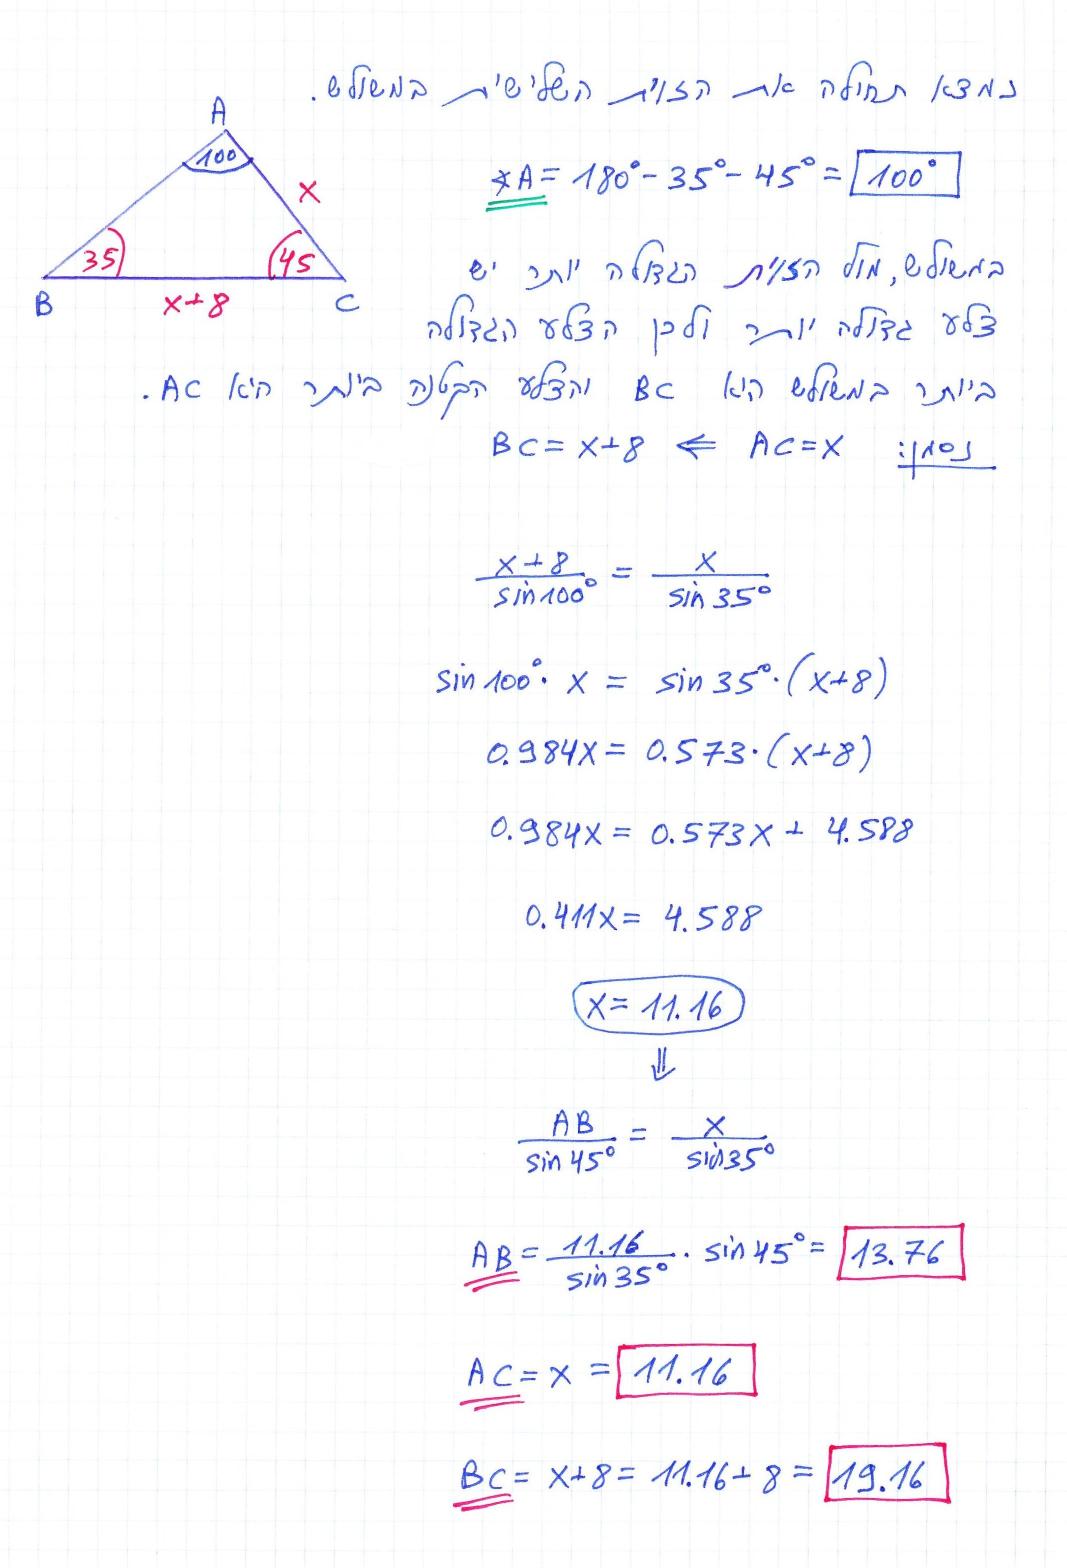 נמצא תחילה את הזוית השלישית במשולש.
∢A = 180° - 35° - 45° = 100°
A
100
x
35
45
B
x+8
C
במשולש, מול הזוית הגדולה יותר יש
צלע גדולה יותר ולכן הצלע הגדולה
ביותר במשולש היא BC והצלע הקטנה ביותר היא AC.
נסמן: AC = x ⇐ BC = x+8
x+8 / sin 100° = x / sin 35°
sin 100° · x = sin 35° · (x+8)
0.984x = 0.573 · (x+8)
0.984x = 0.573x + 4.588
0.411x = 4.588
x = 11.16
⇓
AB / sin 45° = x / sin 35°
AB = 11.16 / sin 35° · sin 45° = 13.76
AC = x = 11.16
BC = x+8 = 11.16 + 8 = 19.16